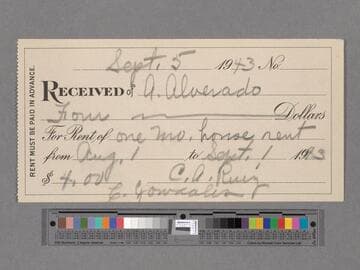 Sept. 5 1943 No.
RENT MUST BE PAID IN ADVANCE.
RECEIVED of A. Alverado
Four Dollars
For Rent of one mo. house rent
from Aug. 1 to Sept. 1 1943
$ 4.00 C.A. Ruiz